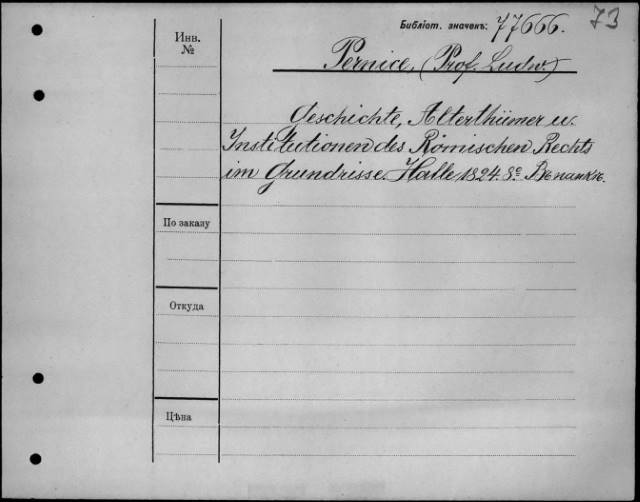 Библіот. значекъ: 77666.
73
Инв.
№
Pernice, (Prof. Ludw.)
Geschichte, Alterthümer u.
Institutionen des Römischen Rechts
im Grundrisse. Halle 1824. 8º Въ папкѣ.
По заказу
Откуда
Цѣна